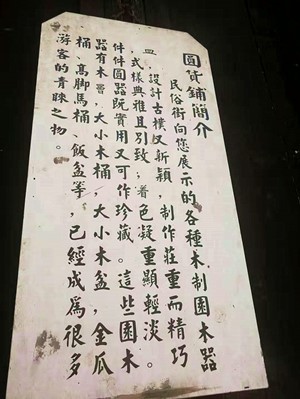 圓貨鋪簡介
民俗街向您展示的各種木制圓木器
皿，設計古樸又新穎，制作莊重而精巧
，式樣典雅且别致；着色凝重顯輕淡。
件件圓器既實用又可作珍藏。這些圓木
器有木亶、大小木桶，大小木盆，金瓜
桶、高脚馬桶、飯盆等，已經成爲很多
游客的青睞之物。